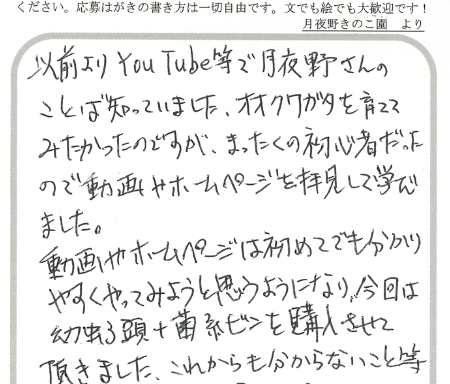 ください。応募はがきの書き方は一切自由です。文でも絵でも大歓迎です！
月夜野きのこ園　より
以前よりYouTube等で月夜野さんの
ことは知っていました、オオクワガタを育てて
みたかったのですが、まったくの初心者だった
ので動画やホームページを拝見して学び
ました。
動画やホームページは初めてでも分かり
やすくやってみようと思うようになり、今回は
幼虫3頭+菌糸ビンを購入させて
頂きました、これからも分からないこと等